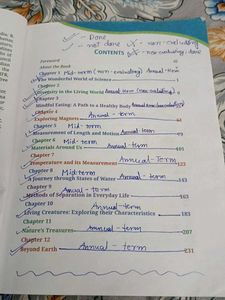 ✓ - Done
- not done ✓✗ - non-evaluating
CONTENTS ✗ - non-evaluating, done
Foreword
About the Book
Chapter 1 Mid-term (non-evaluating) Annual-term
The Wonderful World of Science
Chapter 2
Diversity in the Living World Annual (non-evaluating) 9
Chapter 3
Mindful Eating: A Path to a Healthy Body
Chapter 4 Annual-term
Exploring Magnets 61
Chapter 5 Mid-term
Measurement of Length and Motion Annual-term
Chapter 6 Mid-term
Materials Around Us Annual-term 101
Chapter 7 Annual-Term
Temperature and its Measurement 123
Chapter 8 Mid-term
A Journey through States of Water Annual-term 143
Chapter 9 Annual-term
Methods of Separation in Everyday Life 163
Chapter 10 Annual-term
Living Creatures: Exploring their Characteristics 183
Chapter 11 Annual-term
Nature's Treasures 207
Chapter 12
Beyond Earth Annual-term 231